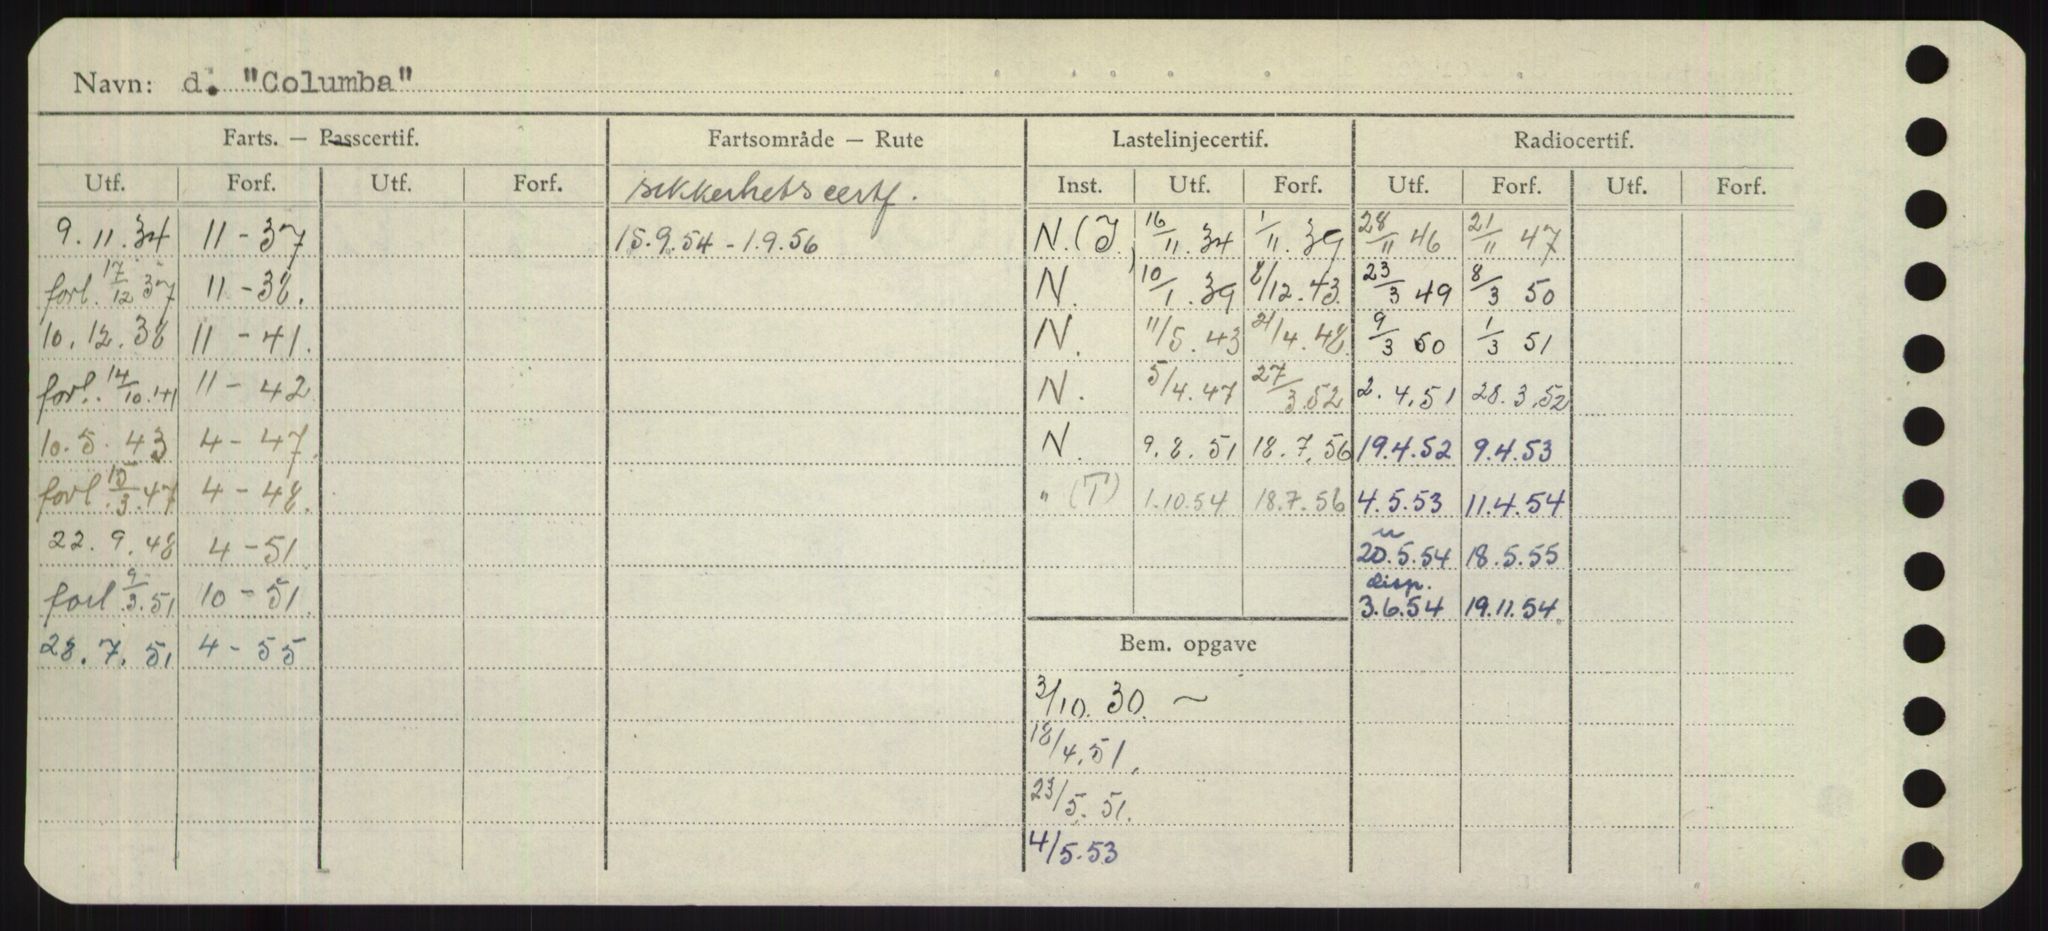 Navn: d. "Columba"
Farts. — Passcertif. Fartsområde — Rute Lastelinjecertif. Radiocertif.
Utf. Forf. Utf. Forf. sikkerhetscertf. Inst. Utf. Forf. Utf. Forf. Utf. Forf.
9.11.34 11-37 15.9.54-1.9.56 N.(I) 16/11.34 1/11.39 28/11 46 21/11 47
forl. 17/12 37 11-38. N. 10/1.39 8/12.43. 23/3 49 8/3 50
10.12.38 11-41. N. 11/5.43 21/4.48. 9/3 50 1/3 51
forl. 14/10.41 11-42 N. 5/4.47 27/3.52 2.4.51 28.3.52
10.5.43 4-47. N. 9.8.51 18.7.56 19.4.52 9.4.53
forl 15/3.47 4-48. " (T) 1.10.54 18.7.56 4.5.53 11.4.54
22.9.48 4-51 20.5.54 18.5.55
forl 9/3.51 10-51. disp. 3.6.54 19.11.54.
28.7.51 4-55
Bem. opgave
3/10.30. ~
18/4.51.
23/5.51.
4/5.53